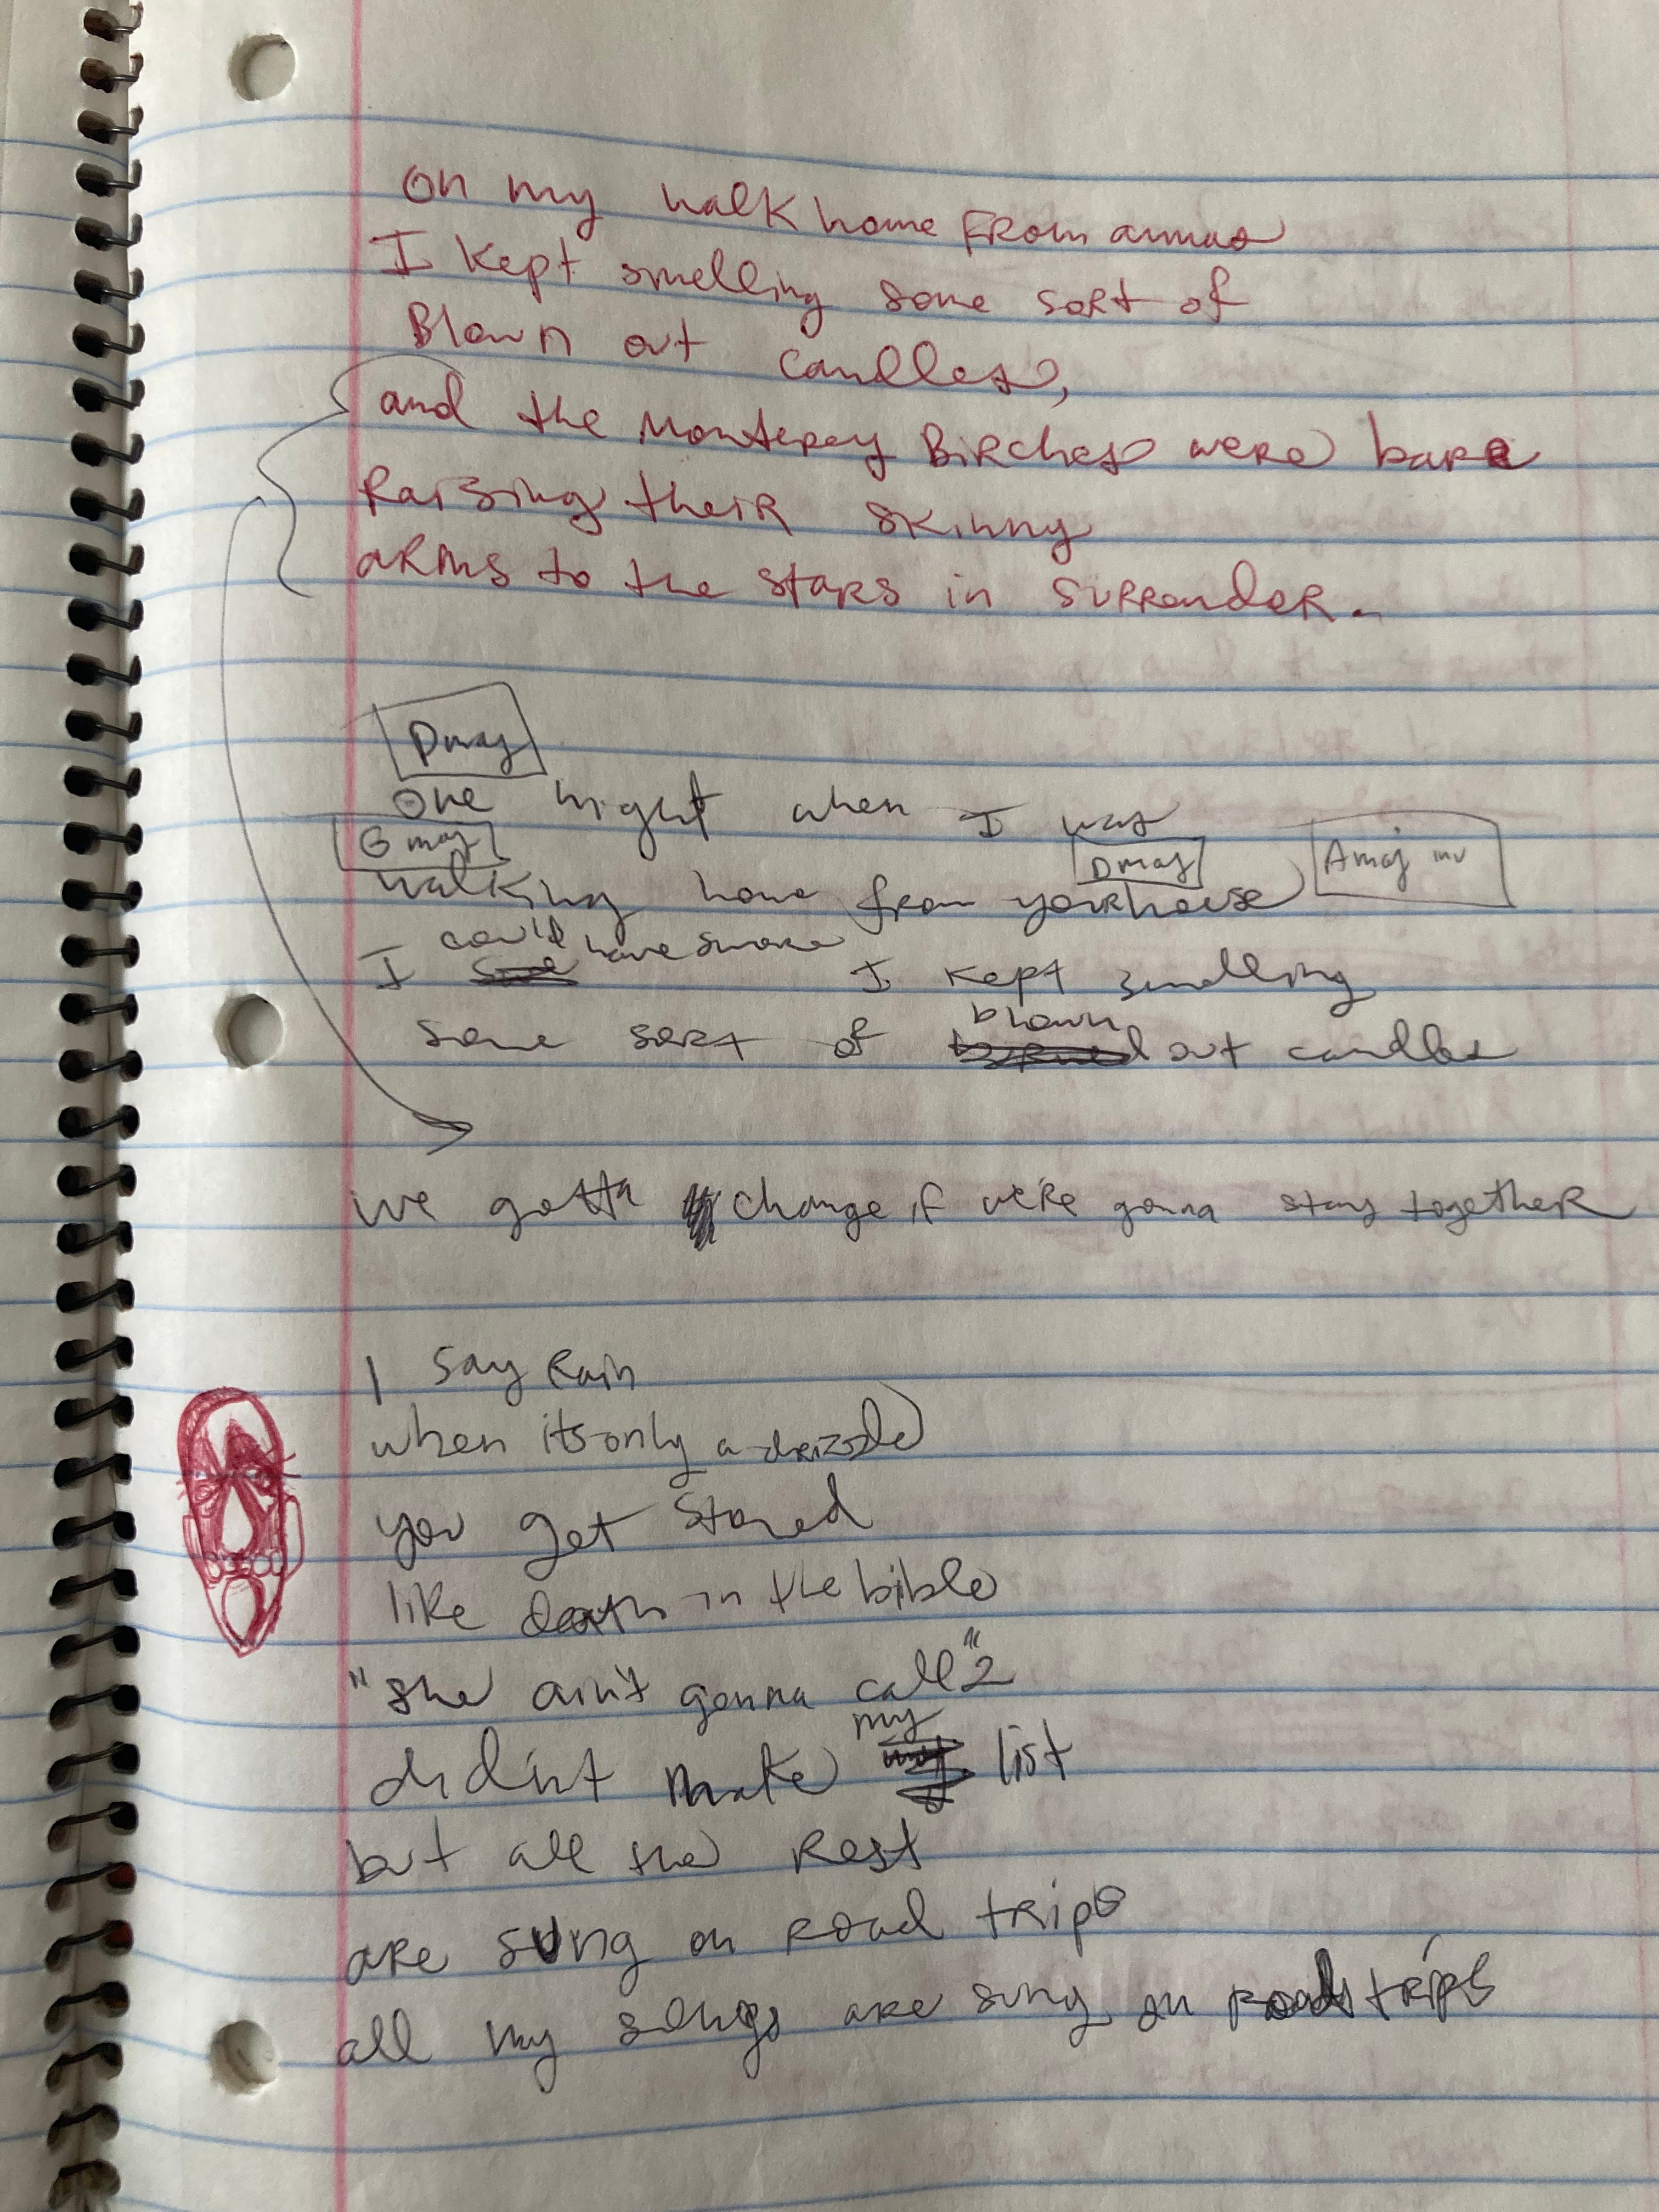 on my walk home from annas
I kept smelling some sort of
Blown out candles,
and the Monterey Birches were bare
Raising their skinny
arms to the stars in surrender.
Dmaj
one night when I was
Gmaj Dmaj Amaj inv
walking home from yourhouse
could have swore
I I kept smelling
blown
some sort of out candles
we gotta change if we're gonna stay together
I say Rain
when its only a drizzle
you get stoned
like death in the bible
"she ain't gonna call"
my
didn't make list
but all the Rest
are sung on road trips
all my songs are sung on road trips